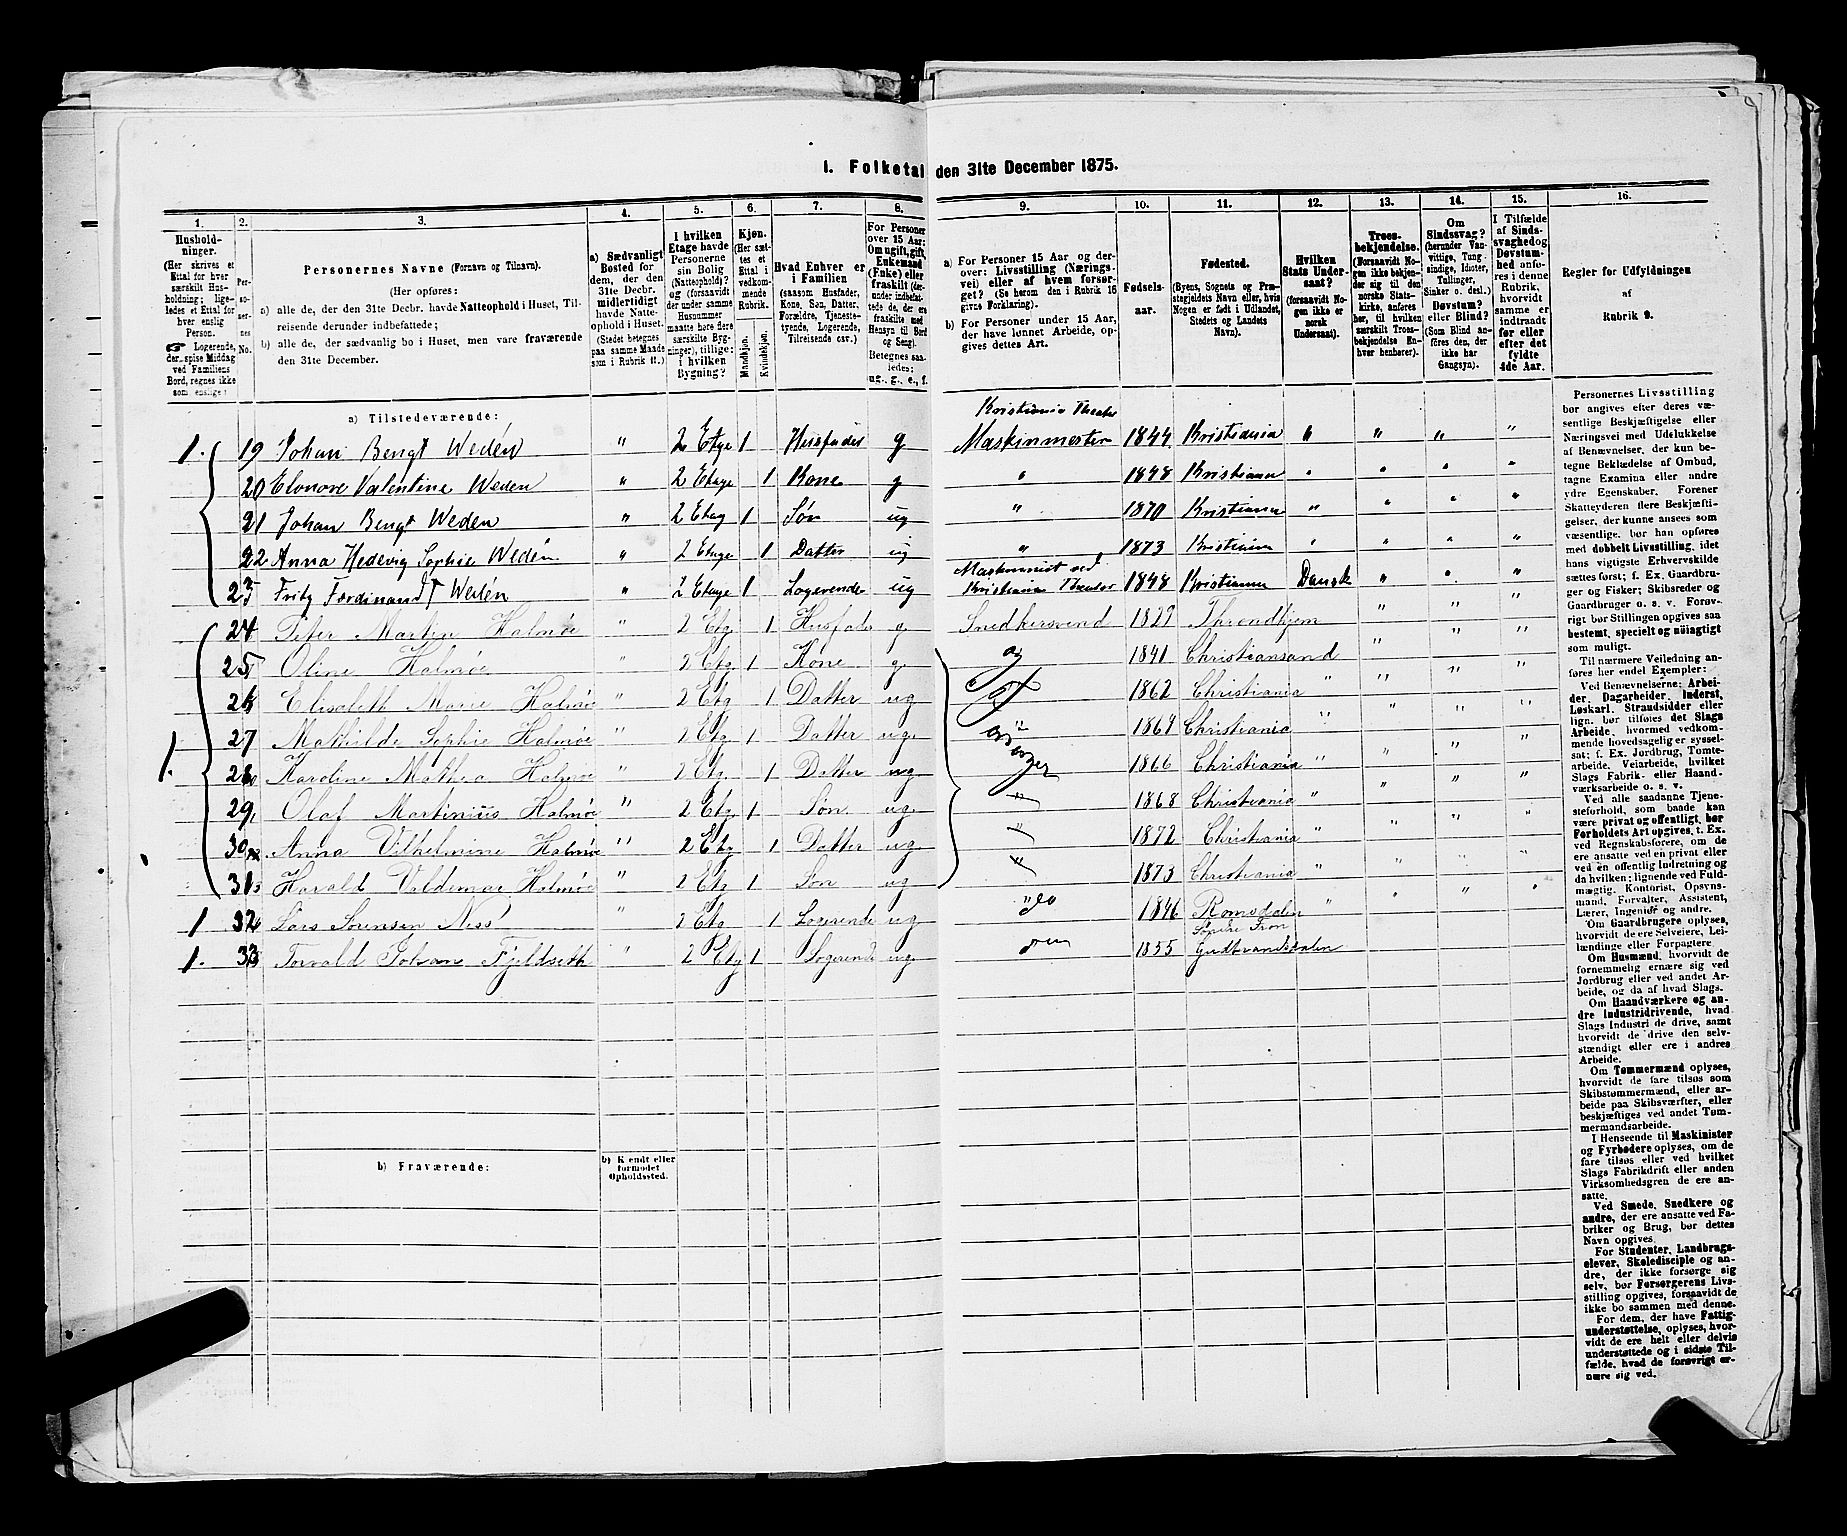 1. Folketal den 31te December 1875.
1. 2. 3. 4. 5. 6. 7. 8. 9. 10. 11. 12. 13. 14. 15. 16.
Husholdninger. (Her skrives et Ettal for hver særskilt Husholdning; ligeledes et Ettal for hver enslig Person.
☛ Logerende, der spise Middag ved Familiens Bord, regnes ikke som enslige)
Personernes No.
Personernes Navne (Fornavn og Tilnavn).
(Her opføres:
a) alle de, der den 31te Decbr. havde Natteophold i Huset, Tilreisende derunder indbefattede;
b) alle de, der sædvanlig bo i Huset, men vare fraværende den 31te December.
a) Sædvanligt Bosted for dem, der den 31te Decbr. midlertidigt havde Natteophold i Huset. (Stedet betegnes paa samme Maade som i Rubrik 11.)
I hvilken Etage havde Personerne sin Bolig (Natteophold)? og (forsaavidt der under samme Husnummer maatte høre flere særskilte Bygninger), tillige: i hvilken Bygning?
Kjøn. (Her sættes et Ettal i vedkommende Rubrik.
Mandkjøn. Kvindekjøn.
Hvad Enhver er i Familien (saasom Husfader, Kone, Søn, Datter, Forældre, Tjenestetyende, Logerende, Tilreisende osv.)
For Personer over 15 Aar; Om ugift, gift, Enkemand (Enke) eller fraskilt
Betegnes saaledes: ug., g., e., f.
a) For Personer 15 Aar og derover: Livsstilling (Næringsvei) eller af hvem forsørget? (Se herom den i Rubrik 16 givne Forklaring).
b) For Personer under 15 Aar, der have lønnet Arbeide, opgives dettes Art.
Fødselsaar.
Fødested. (Byens, Sognets og Præstegjeldets Navn eller, hvis Nogen er født i Udlandet, Stedets og Landets Navn).
Hvilken Stats Undersaat? (forsaavidt Nogen ikke er norsk Undersaat).
Troesbekjendelse. (Forsaavidt Nogen ikke bekjender sig til den norske Statskirke, anføres her, til hvilken særskilt Troesbekjendelse Enhver henhører).
Om Sindssvag? (herunder Vanvittige, Tungsindige, Idioter, Tullinger, Sinker o. desl.). Døvstum? eller Blind? (Som Blind anføres den, der ikke har Gangsyn).
I Tilfælde af Sindssvaghed og Døvstumhed anføres i denne Rubrik, hvorvidt samme er indtraadt før eller efter det fyldte 4de Aar.
Regler for Udfyldningen af Rubrik 9.
a) Tilstedeværende:
Kristiania Theater
1. 19 Johan Bengt Wedén " 2 Etge 1 Husfader g Maskinmester 1844 Kristiania " " " "
20 Elonore Valentine Weden " 2 Etage 1 Kone g " 1848 Kristiania " " " "
21 Johan Bengt Weden " 2 Etag 1 Søn ug " 1870 Kristiania " " " "
22 Anna Hedevig Sophie Wedén " 2 Etage 1 Datter ug " 1873 Kristiania " " " "
Maskinmist ved
23 Fritz Ferdinandt Wedén " 2 Etage 1 Logerende ug Kristiania Theater 1848 Kristiania Dansk " " "
24 Peter Martin Halmøe " 2 Etg 1 Husfader g Snedkersvend 1829 Throndhjem " " "
25 Oline Halmøe " 2 Etg 1 Kone g. 1841 Christiansand " " "
26 Elisabeth Marie Halmøe " 2 Etg 1 Datter ug 1862 Christiania " " " "
27 Mathilde Sophie Halmøe " 2 Etg 1 Datter ug. " 1864 Christiania " " " "
1. 28 Karoline Mathea Halmøe " 2 Etg. 1 Datter ug 1866 Christiania " " " "
29 Olaf Martinius Halmøe " 2 Etg 1 Søn ug. " 1868 Christiania " " " "
30 Anna Vilhelmine Halmøe " 2 Etg 1 Datter ug " 1872 Christiania " " " "
31 Harald Valdemar Halmøe " 2 Etg 1 Søn ug " 1873 Christiania " " " "
1 32 Lars Sørensen Ness " 2 Etg 1 Logerende ug do 1846 Romsdalen " " " "
Søndre Fron
1. 33 Torvald Johan Fjeldseth " 2 Etg 1 Logerende ug. 1855 Gudbrandsdalen
b) Fraværende:
b) Kjendt eller formodet Opholdssted.
Personernes Livsstilling bør angives efter deres væsentlige Beskjæftigelse eller Næringsvei med Udelukkelse af Benævnelser, der kun betegne Beklædelse af Ombud, tagne Examina eller andre ydre Egenskaber. Forener Skatteyderen flere Beskjæftigelser, der kunne ansees som væsentlige, bør han opføres med dobbelt Livsstilling, idet hans vigtigste Erhvervskilde sættes først; f. Ex. Gaardbruger og Fisker; Skibsreder og Gaardbruger o. s. v. Forøvrigt bør Stillingen opgives saa bestemt, specielt og nøiagtigt som muligt.
Til nærmere Veiledning anføres her endel Exempler:
Ved Benævnelserne: Arbeider, Dagarbeider, Inderst, Løskarl, Strandsidder eller lign. bør tilføies det Slags Arbeide, hvormed vedkommende hovedsagelig er sysselsat; f. Ex. Jordbrug, Tomtearbeide, Veiarbeide, hvilket Slags Fabrik- eller Haandværksarbeide o. s. v.
Ved alle saadanne Tjenesteforhold, som baade kan være privat og offentligt, bør Forholdets Art opgives, t. Ex. ved Regnskabsførere, om de ere ansatte ved en privat eller ved en offentlig Indretning og da hvilken; lignende ved Fuldmægtig, Kontorist, Opsynsmand, Forvalter, Assistent, Lærer, Ingeniør og andre.
Om Gaardbrugere oplyses, hvorvidt de ere Selveiere, Leilændinge eller Forpagtere
Om Husmænd, hvorvidt de fornemmelig ernære sig ved Jordbrug eller ved andet Arbeide, og da af hvad Slags.
Om Haandværkere og andre Industridrivende, hvad Slags Industri de drive, samt hvorvidt de drive den selvstændigt eller ere i andres Arbeide.
Om Tømmermænd oplyses, hvorvidt de fare tilsøs som Skibstømmermænd, eller arbeide paa Skibsværfter, eller beskjæftiges ved andet Tømmermandsarbeide.
I Henseende til Maskinister og Fyrbødere oplyses, om de fare tilsøs eller ved hvilket Slags Fabrikdrift eller anden Virksomhedsgren de ere ansatte.
Ved Smede, Snedkere og andre, der ere ansatte ved Fabriker og Brug, bør dettes Navn opgives.
For Studenter, Landbrugselever, Skoledisciple og andre, der ikke forsørge sig selv, bør Forsørgerens Livsstilling opgives, forsaavidt de ikke bo sammen med denne.
For dem, der have Fattigunderstøttelse, oplyses, hvorvidt de ere helt eller delvis understøttede og i sidste Tilfælde, hvad de forøvrigt ernære sig ved.